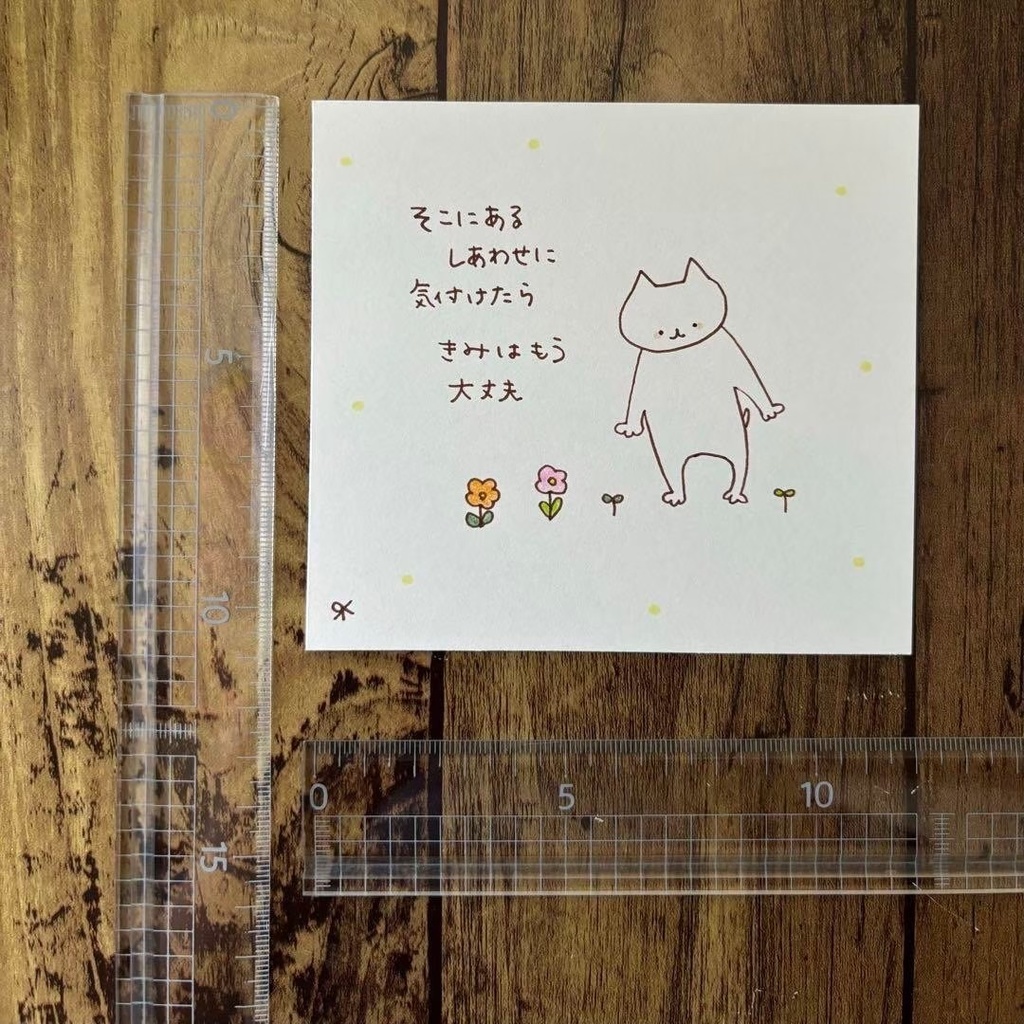 そこにある
しあわせに
気付けたら
きみはもう
大丈夫
0
5
10
15
0
5
10